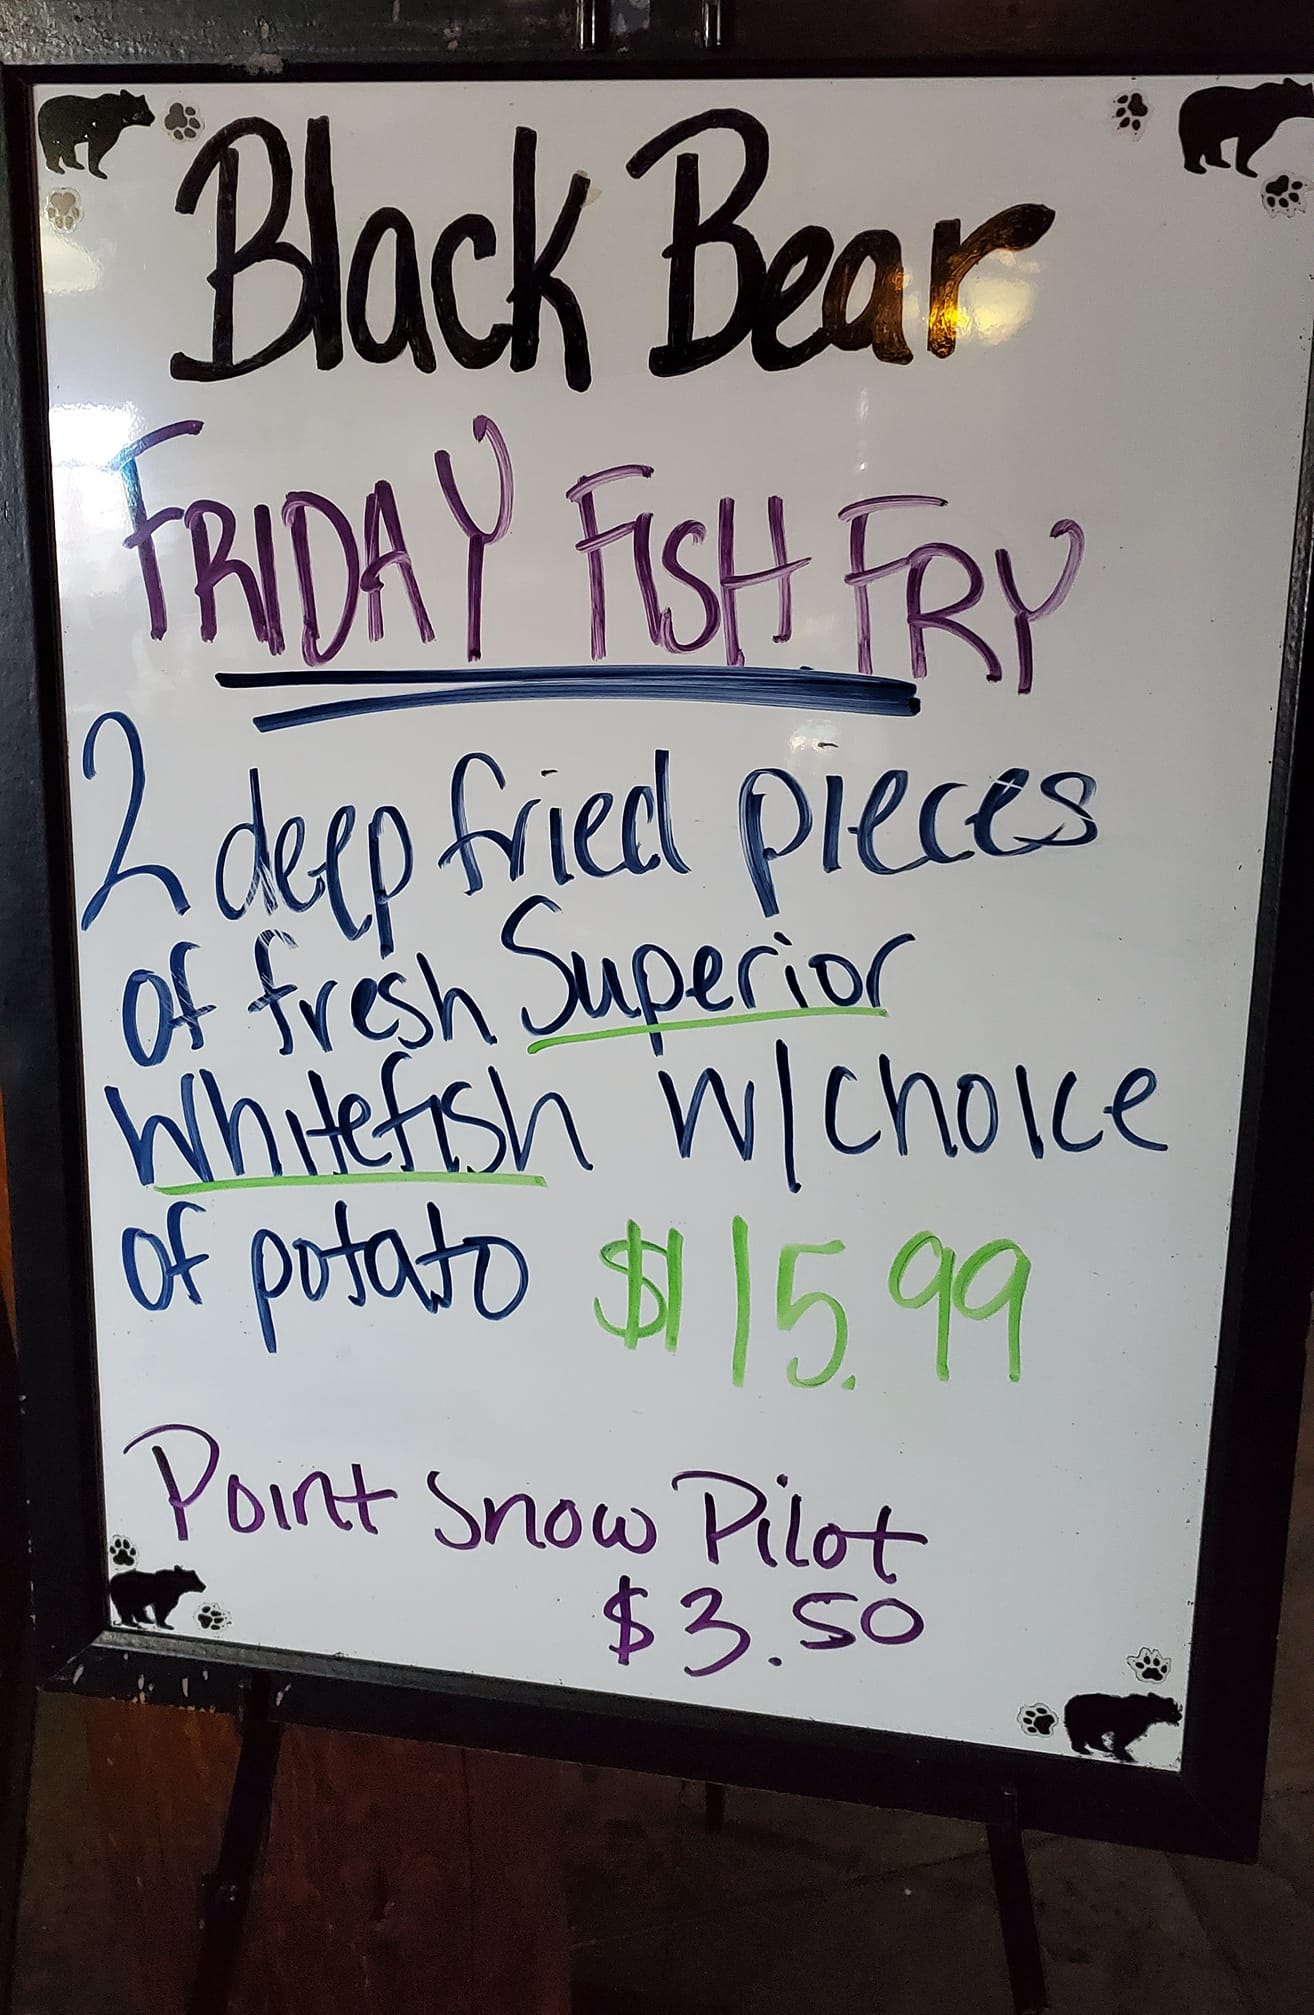 Black Bear
FRIDAY FISH FRY
2 deep fried pieces
of fresh Superior
Whitefish w/choice
of potato $15.99
Point Snow Pilot
$3.50